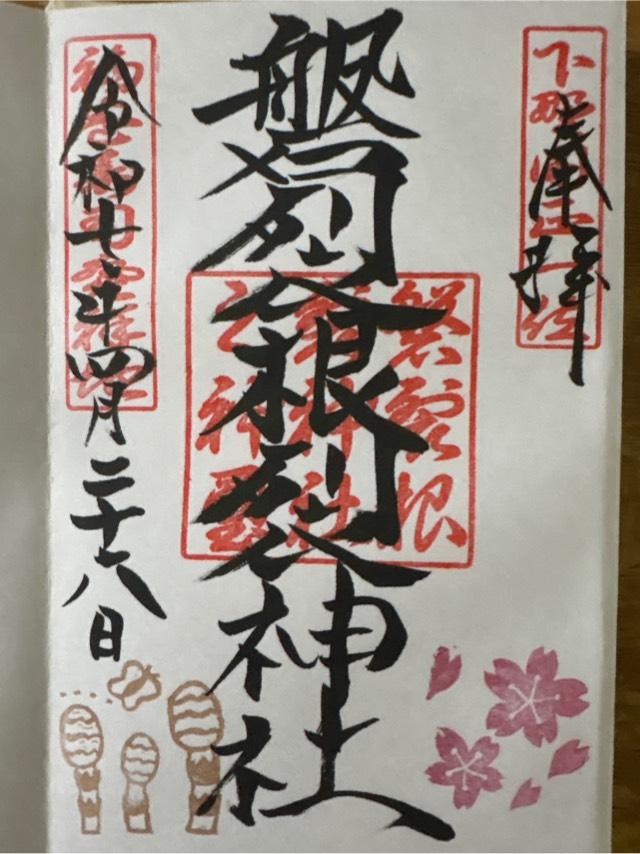 奉拝
磐裂根裂神社
令和七年四月二十八日
磐裂根
裂神社
之神璽